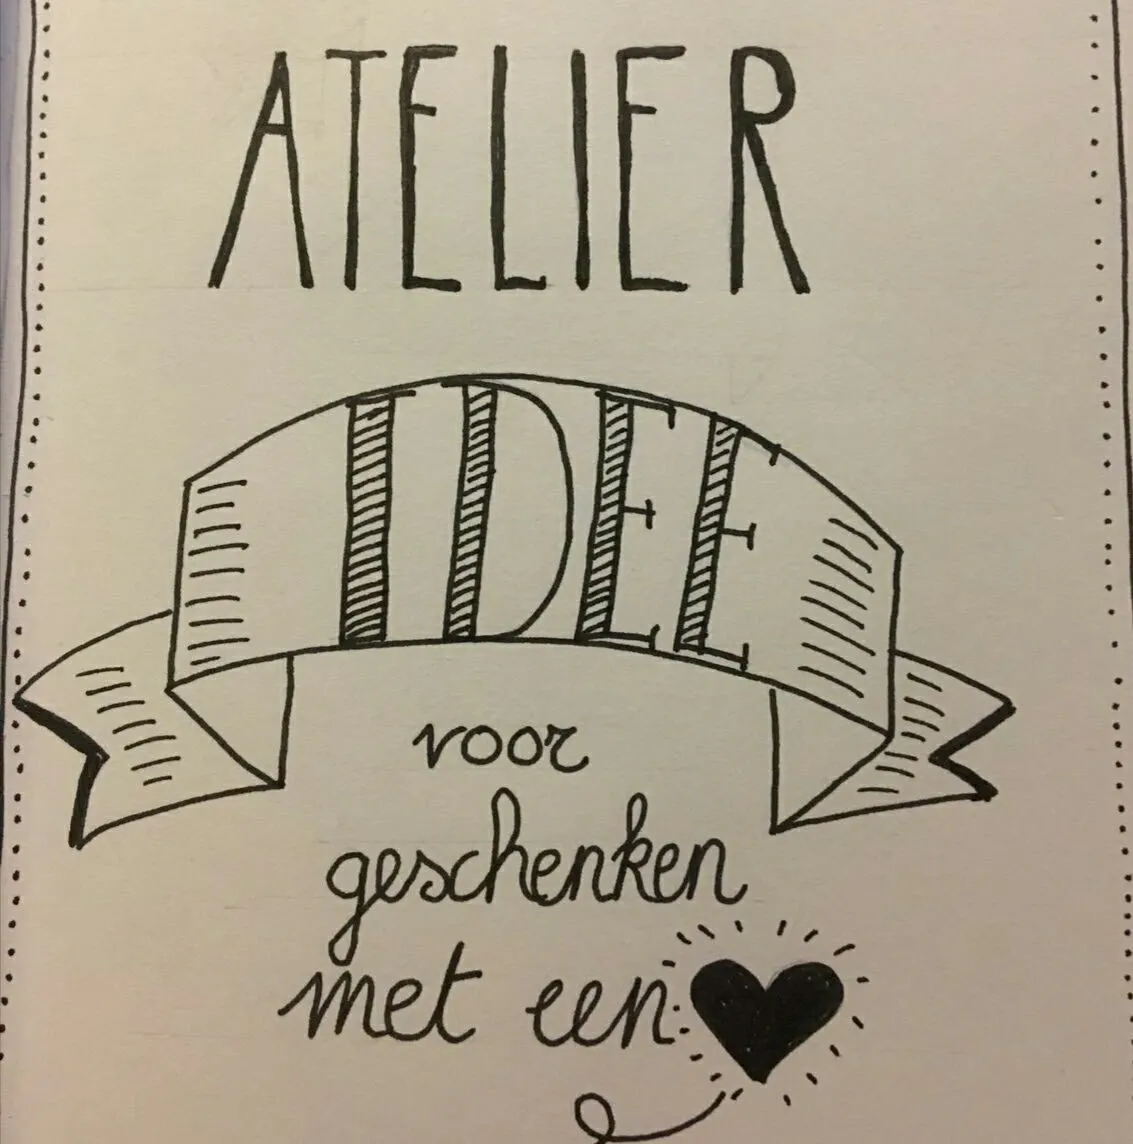 ATELIER
IDEE
voor
geschenken
met een